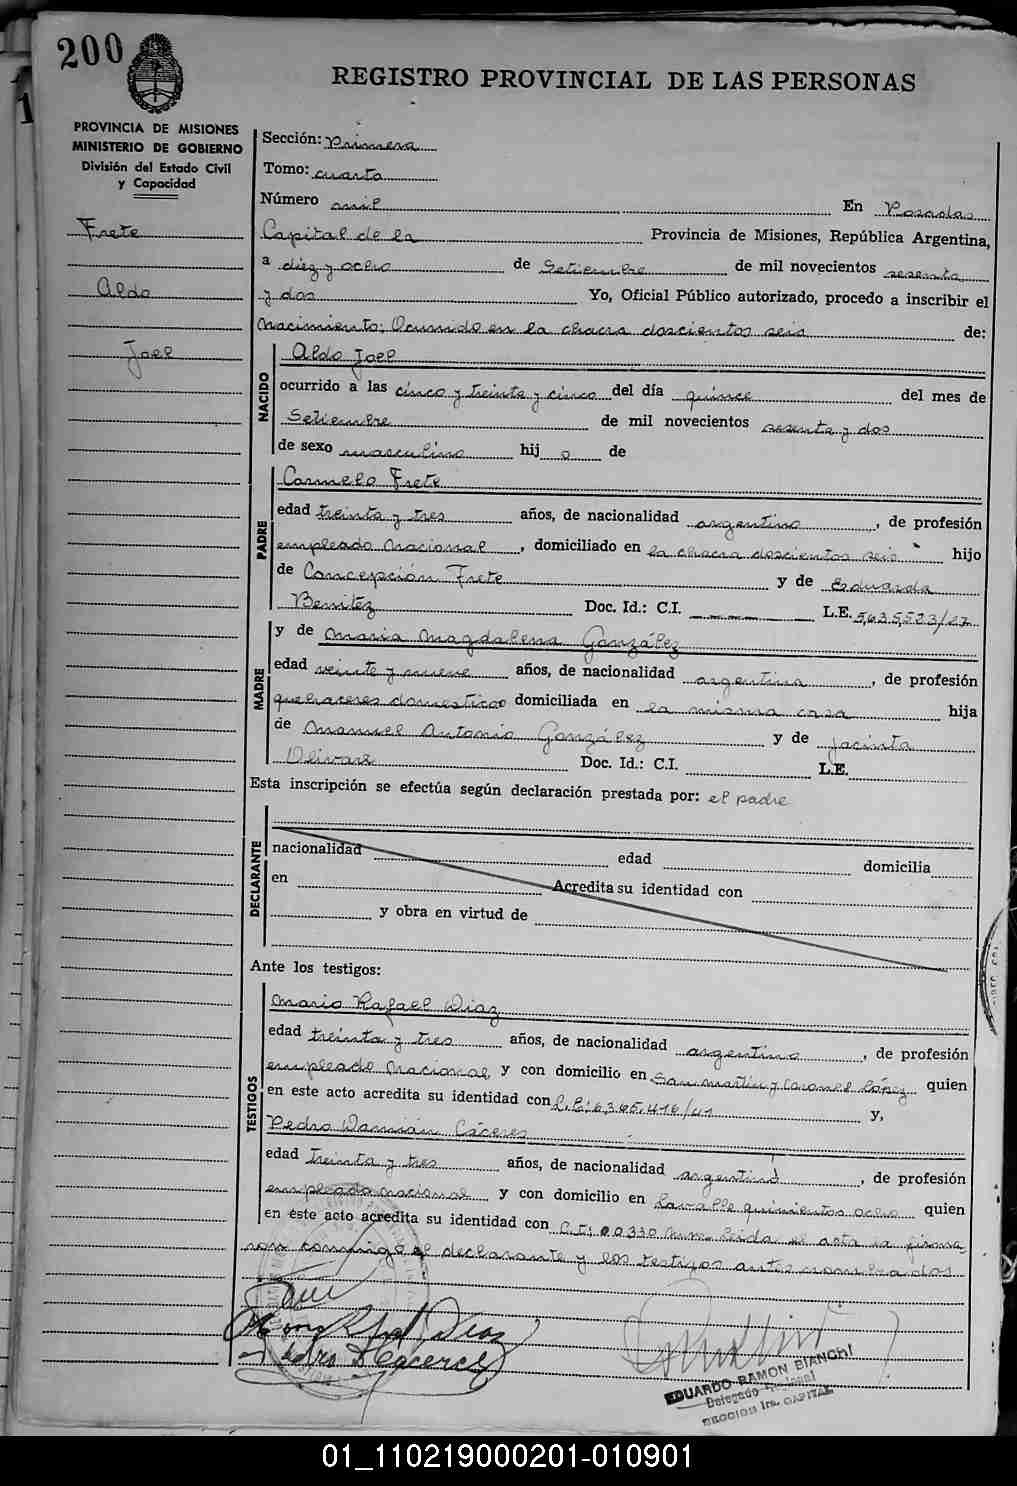 200
REGISTRO PROVINCIAL DE LAS PERSONAS
PROVINCIA DE MISIONES
MINISTERIO DE GOBIERNO
División del Estado Civil
y Capacidad
Frete
Aldo
Joel
Sección: Primera
Tomo: cuarto
Número mil En Posadas
Capital de la Provincia de Misiones, República Argentina,
a diez y ocho de Setiembre de mil novecientos sesenta
y dos Yo, Oficial Público autorizado, procedo a inscribir el
nacimiento: Ocurrido en la chacra doscientos seis de:
NACIDO
Aldo Joel
ocurrido a las cinco y treinta y cinco del día quince del mes de
Setiembre de mil novecientos sesenta y dos
de sexo masculino hijo de
PADRE
Carmelo Frete
edad treinta y tres años, de nacionalidad argentino, de profesión
empleado Nacional, domiciliado en la chacra doscientos seis hijo
de Concepción Frete y de Eduarda
Benitez Doc. Id.: C.I. L.E. 5,635,523/27
MADRE
y de Maria Magdalena González
edad veinte y nueve años, de nacionalidad argentina, de profesión
quehaceres domesticos domiciliada en la misma casa hija
de Manuel Antonio González y de Jacinta
Olivare Doc. Id.: C.I. L.E.
Esta inscripción se efectúa según declaración prestada por: el padre
DECLARANTE
nacionalidad edad domicilia
en Acredita su identidad con
y obra en virtud de
Ante los testigos:
TESTIGOS
Mario Rafael Diaz
edad treinta y tres años, de nacionalidad argentino, de profesión
empleado Nacional y con domicilio en San Martin y Coronel López quien
en este acto acredita su identidad con L.E: 6.365.416/41 y,
Pedro Damián Cáceres
edad treinta y tres años, de nacionalidad argentino, de profesión
empleado nacional y con domicilio en Lavalle quinientos ocho quien
en este acto acredita su identidad con C.I: 00330 leida el acta la firma
con conmigo el declarante y los testigos antes nombrados
Diaz
Pedro D Caceres
EDUARDO RAMON BIANCHI
Delegado
SECCION 1ra. CAPITAL
01_110219000201-010901